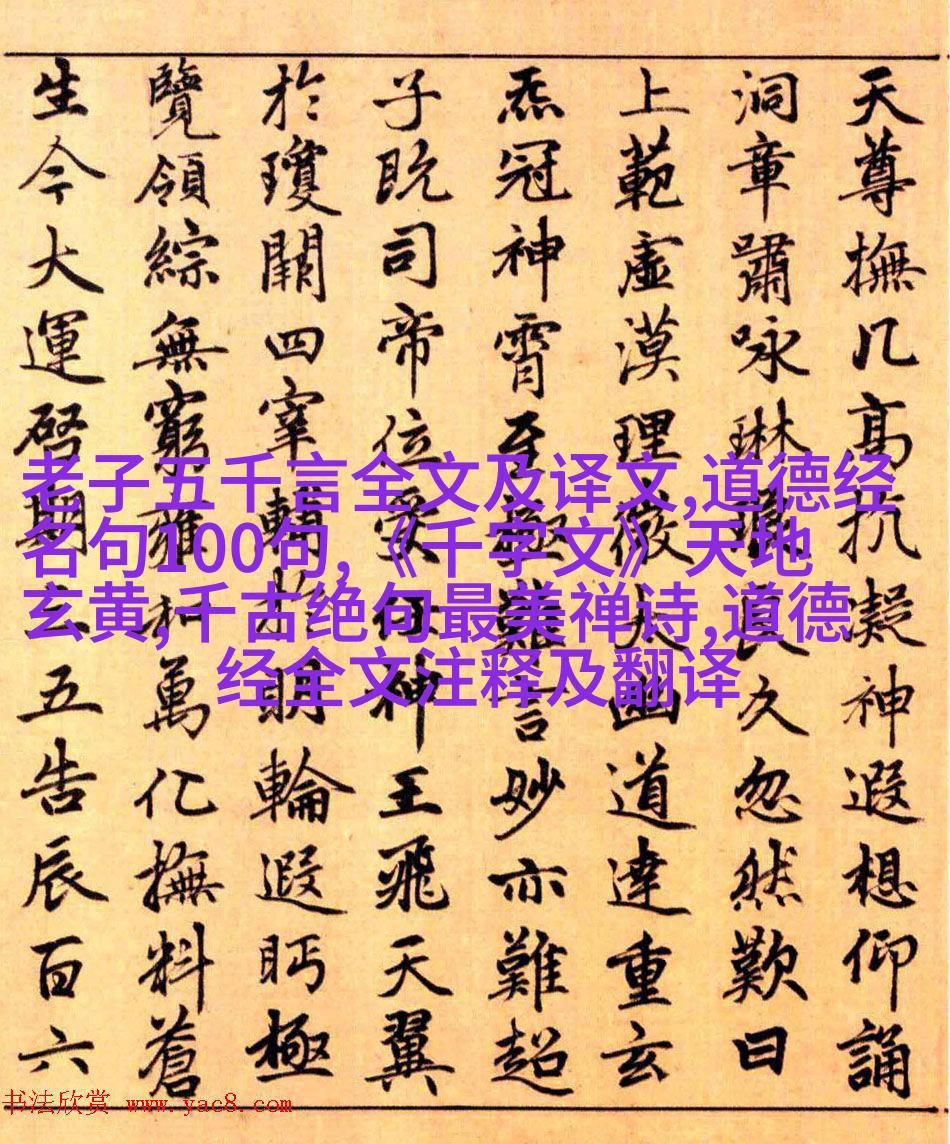 天尊撫几高抗凝神遐想仰誦
洞章嘯咏琳良久忽然歎曰
上範虛漠理微大幽道達重玄
炁冠神霄至極難言妙亦難超
子既司帝位受任神王飛天翼
於瓊闕四宰輔於明輪遐眄極
覽領綜無窮雍和萬化撫料蒼
生今大運啓期三五告辰百六
老子五千言全文及译文,道德经
名句100句,《千字文》天地
玄黄,千古绝句最美禅诗,道德
经全文注释及翻译
书法欣赏 www.yac8.com